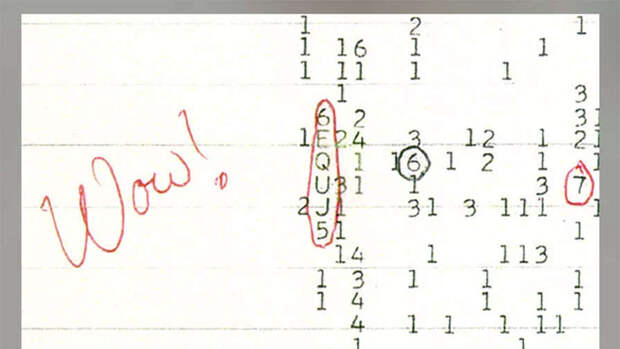 1 2 1
1 16 1 1
1 11 1 1
1 3
6 2 31
1 E24 3 12 1 21
Q 1 16 1 2 1 1
Wow!
U31 1 3 7
2 J1 31 3 111 1
51 1
14 1 113
1 3 1 1 1
1 4 1 1 1
4 1 1 1 11
1 1